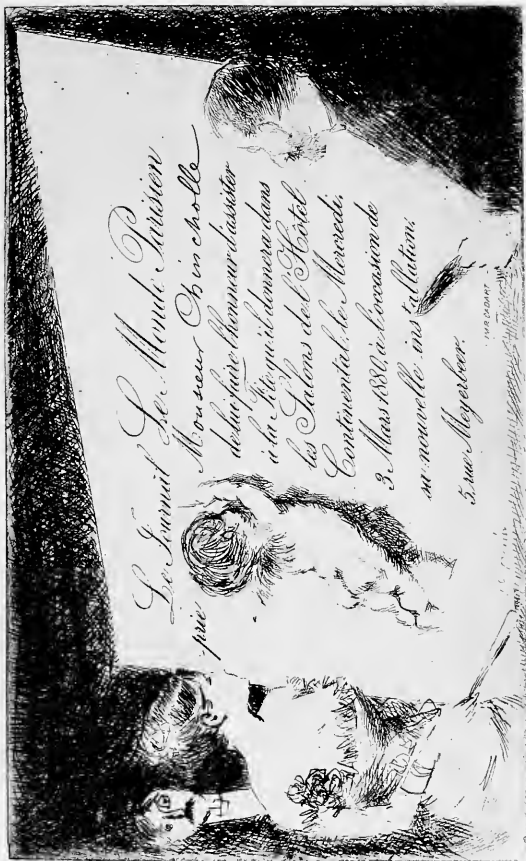 Le Journal Le Monde Parisien
prie Monsieur Chincholle
de lui faire l'honneur d'assister
à la Fête qu'il donnera dans
les Salons de l'Hôtel
Continental, le Mercredi
3 Mars 1880, à l'occasion de
sa nouvelle installation.
5, rue Meyerbeer.
IMP. CADART